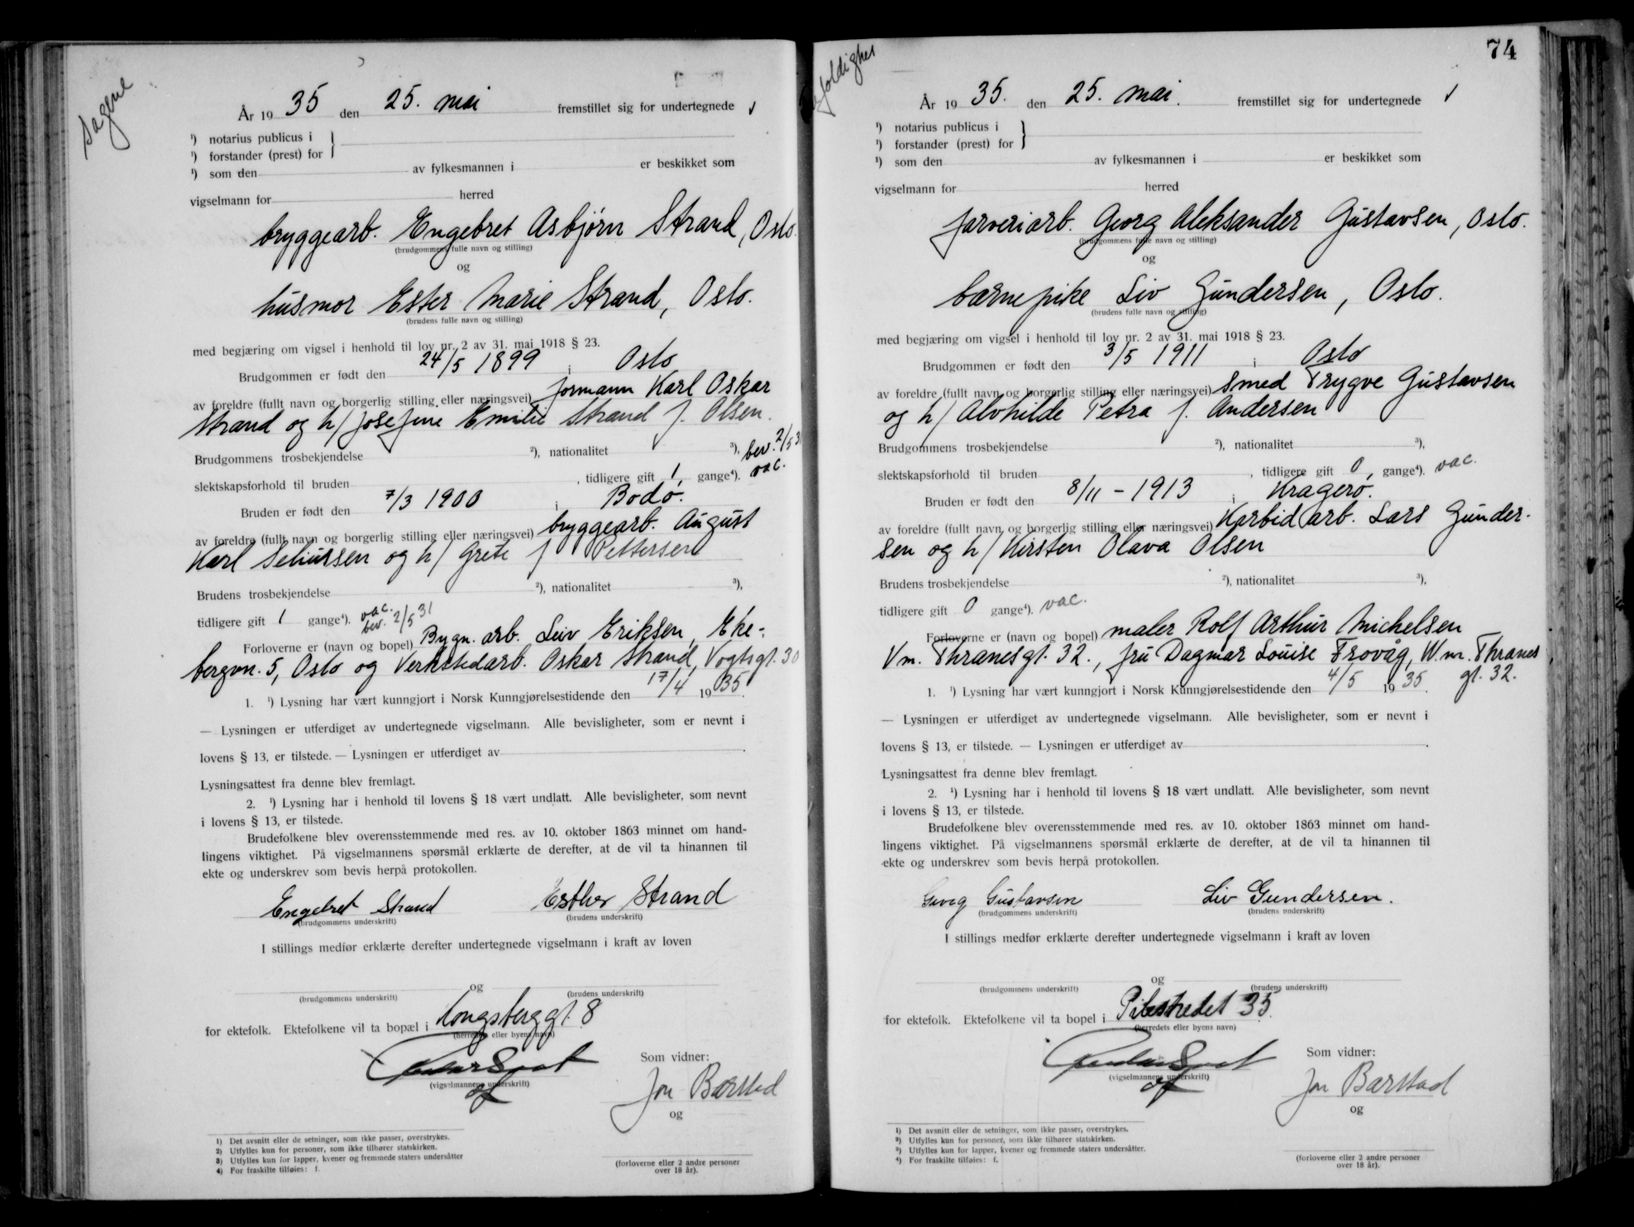 Sagene
År 19 35 den 25. mai fremstillet sig for undertegnede
¹) notarius publicus i
¹) forstander (prest) for
¹) som den av fylkesmannen i er beskikket som
vigselmann for herred
bryggearb. Engebret Asbjørn Strand, Oslo.
(brudgommens fulle navn og stilling)
og
husmor Ester Marie Strand, Oslo.
(brudens fulle navn og stilling)
med begjæring om vigsel i henhold til lov nr. 2 av 31. mai 1918 § 23.
Brudgommen er født den 24/5 1899 i Oslo
av foreldre (fullt navn og borgerlig stilling eller næringsvei) formann Karl Oskar
Strand og h/ Josefine Emilie Strand f. Olsen.
Brudgommens trosbekjendelse ²), nationalitet ³), bev. 2/5 3
slektskapsforhold til bruden , tidligere gift 1, gange⁴). vac.
Bruden er født den 7/3 1900 i Bodø.
av foreldre (fullt navn og borgerlig stilling eller næringsvei) bryggearb. August
Karl og h/ Grete f Pettersen
Brudens trosbekjendelse ²), nationalitet ³),
tidligere gift 1 gange⁴). vac. bev. 2/5 31
Forloverne er (navn og bopel) Bygn. arb. Leiv Eriksen, Eke-
bergvn. 5, Oslo og Verkstedarb. Oskar Strand, Vogtsgt. 30
1. ¹) Lysning har vært kunngjort i Norsk Kunngjørelsestidende den 17/4 19 35.
— Lysningen er utferdiget av undertegnede vigselmann. Alle bevisligheter, som er nevnt i
lovens § 13, er tilstede. — Lysningen er utferdiget av
Lysningsattest fra denne blev fremlagt.
2. ¹) Lysning har i henhold til lovens § 18 vært undlatt. Alle bevisligheter, som nevnt
i lovens § 13, er tilstede.
Brudefolkene blev overensstemmende med res. av 10. oktober 1863 minnet om hand-
lingens viktighet. På vigselmannens spørsmål erklærte de derefter, at de vil ta hinannen til
ekte og underskrev som bevis herpå protokollen.
Engebret Strand Esther Strand
(brudgommens underskrift) (brudens underskrift)
I stillings medfør erklærte derefter undertegnede vigselmann i kraft av loven
og
(brudgommens underskrift) (brudens underskrift)
for ektefolk. Ektefolkene vil ta bopæl i Kongsberggt 8
(herredets eller byens navn)
Som vidner:
(vigselmannens underskrift)
Jon Barstad
og
1) Det avsnitt eller de setninger, som ikke passer, overstrykes.
2) Utfylles kun for personer, som ikke tilhører statskirken.
3) Utfylles kun for lapper, kvener og fremmede staters undersåtter
4) For fraskilte tilføies: f.
(forloverne eller 2 andre personer
over 18 år).
74
År 19 35. den 25. mai. fremstillet sig for undertegnede
¹) notarius publicus i
¹) forstander (prest) for
¹) som den av fylkesmannen i er beskikket som
vigselmann for herred
farveriarb. Georg Aleksander Gustavsen, Oslo.
(brudgommens fulle navn og stilling)
og
barnepike Liv Gundersen, Oslo.
(brudens fulle navn og stilling)
med begjæring om vigsel i henhold til lov nr. 2 av 31. mai 1918 § 23.
Brudgommen er født den 3/5 1911 i Oslo
av foreldre (fullt navn og borgerlig stilling eller næringsvei) Smed Trygve Gustavsen
og h/ Alvhilde Petra f. Andersen
Brudgommens trosbekjendelse ²), nationalitet ³),
slektskapsforhold til bruden , tidligere gift 0, gange⁴). vac.
Bruden er født den 8/11 - 1913 i Kragerø.
av foreldre (fullt navn og borgerlig stilling eller næringsvei) Karbidarb. Lars Gunder-
sen og h/ Kirsten Olava Olsen
Brudens trosbekjendelse ²), nationalitet ³),
tidligere gift 0 gange⁴). vac.
Forloverne er (navn og bopel) maler Rolf Arthur Michelsen
Vm. Thranesgt. 32., fru Dagmar Louise Frovåg, W.m. Thranes
gt. 32.
1. ¹) Lysning har vært kunngjort i Norsk Kunngjørelsestidende den 4/5 19 35.
— Lysningen er utferdiget av undertegnede vigselmann. Alle bevisligheter, som er nevnt i
lovens § 13, er tilstede. — Lysningen er utferdiget av
Lysningsattest fra denne blev fremlagt.
2. ¹) Lysning har i henhold til lovens § 18 vært undlatt. Alle bevisligheter, som nevnt
i lovens § 13, er tilstede.
Brudefolkene blev overensstemmende med res. av 10. oktober 1863 minnet om hand-
lingens viktighet. På vigselmannens spørsmål erklærte de derefter, at de vil ta hinannen til
ekte og underskrev som bevis herpå protokollen.
Georg Gustavsen Liv Gundersen.
(brudgommens underskrift) (brudens underskrift)
I stillings medfør erklærte derefter undertegnede vigselmann i kraft av loven
og
(brudgommens underskrift) (brudens underskrift)
for ektefolk. Ektefolkene vil ta bopel i Pilestredet 35.
(herredets eller byens navn)
Som vidner:
(vigselmannens underskrift)
Jon Barstad
og
1) Det avsnitt eller de setninger, som ikke passer, overstrykes.
²) Utfylles kun for personer, som ikke tilhører statskirken.
³) Utfylles kun for lapper, kvener og fremmede staters undersåtter.
⁴) For fraskilte tilføies: f.
(forloverne eller 2 andre personer
over 18 år).